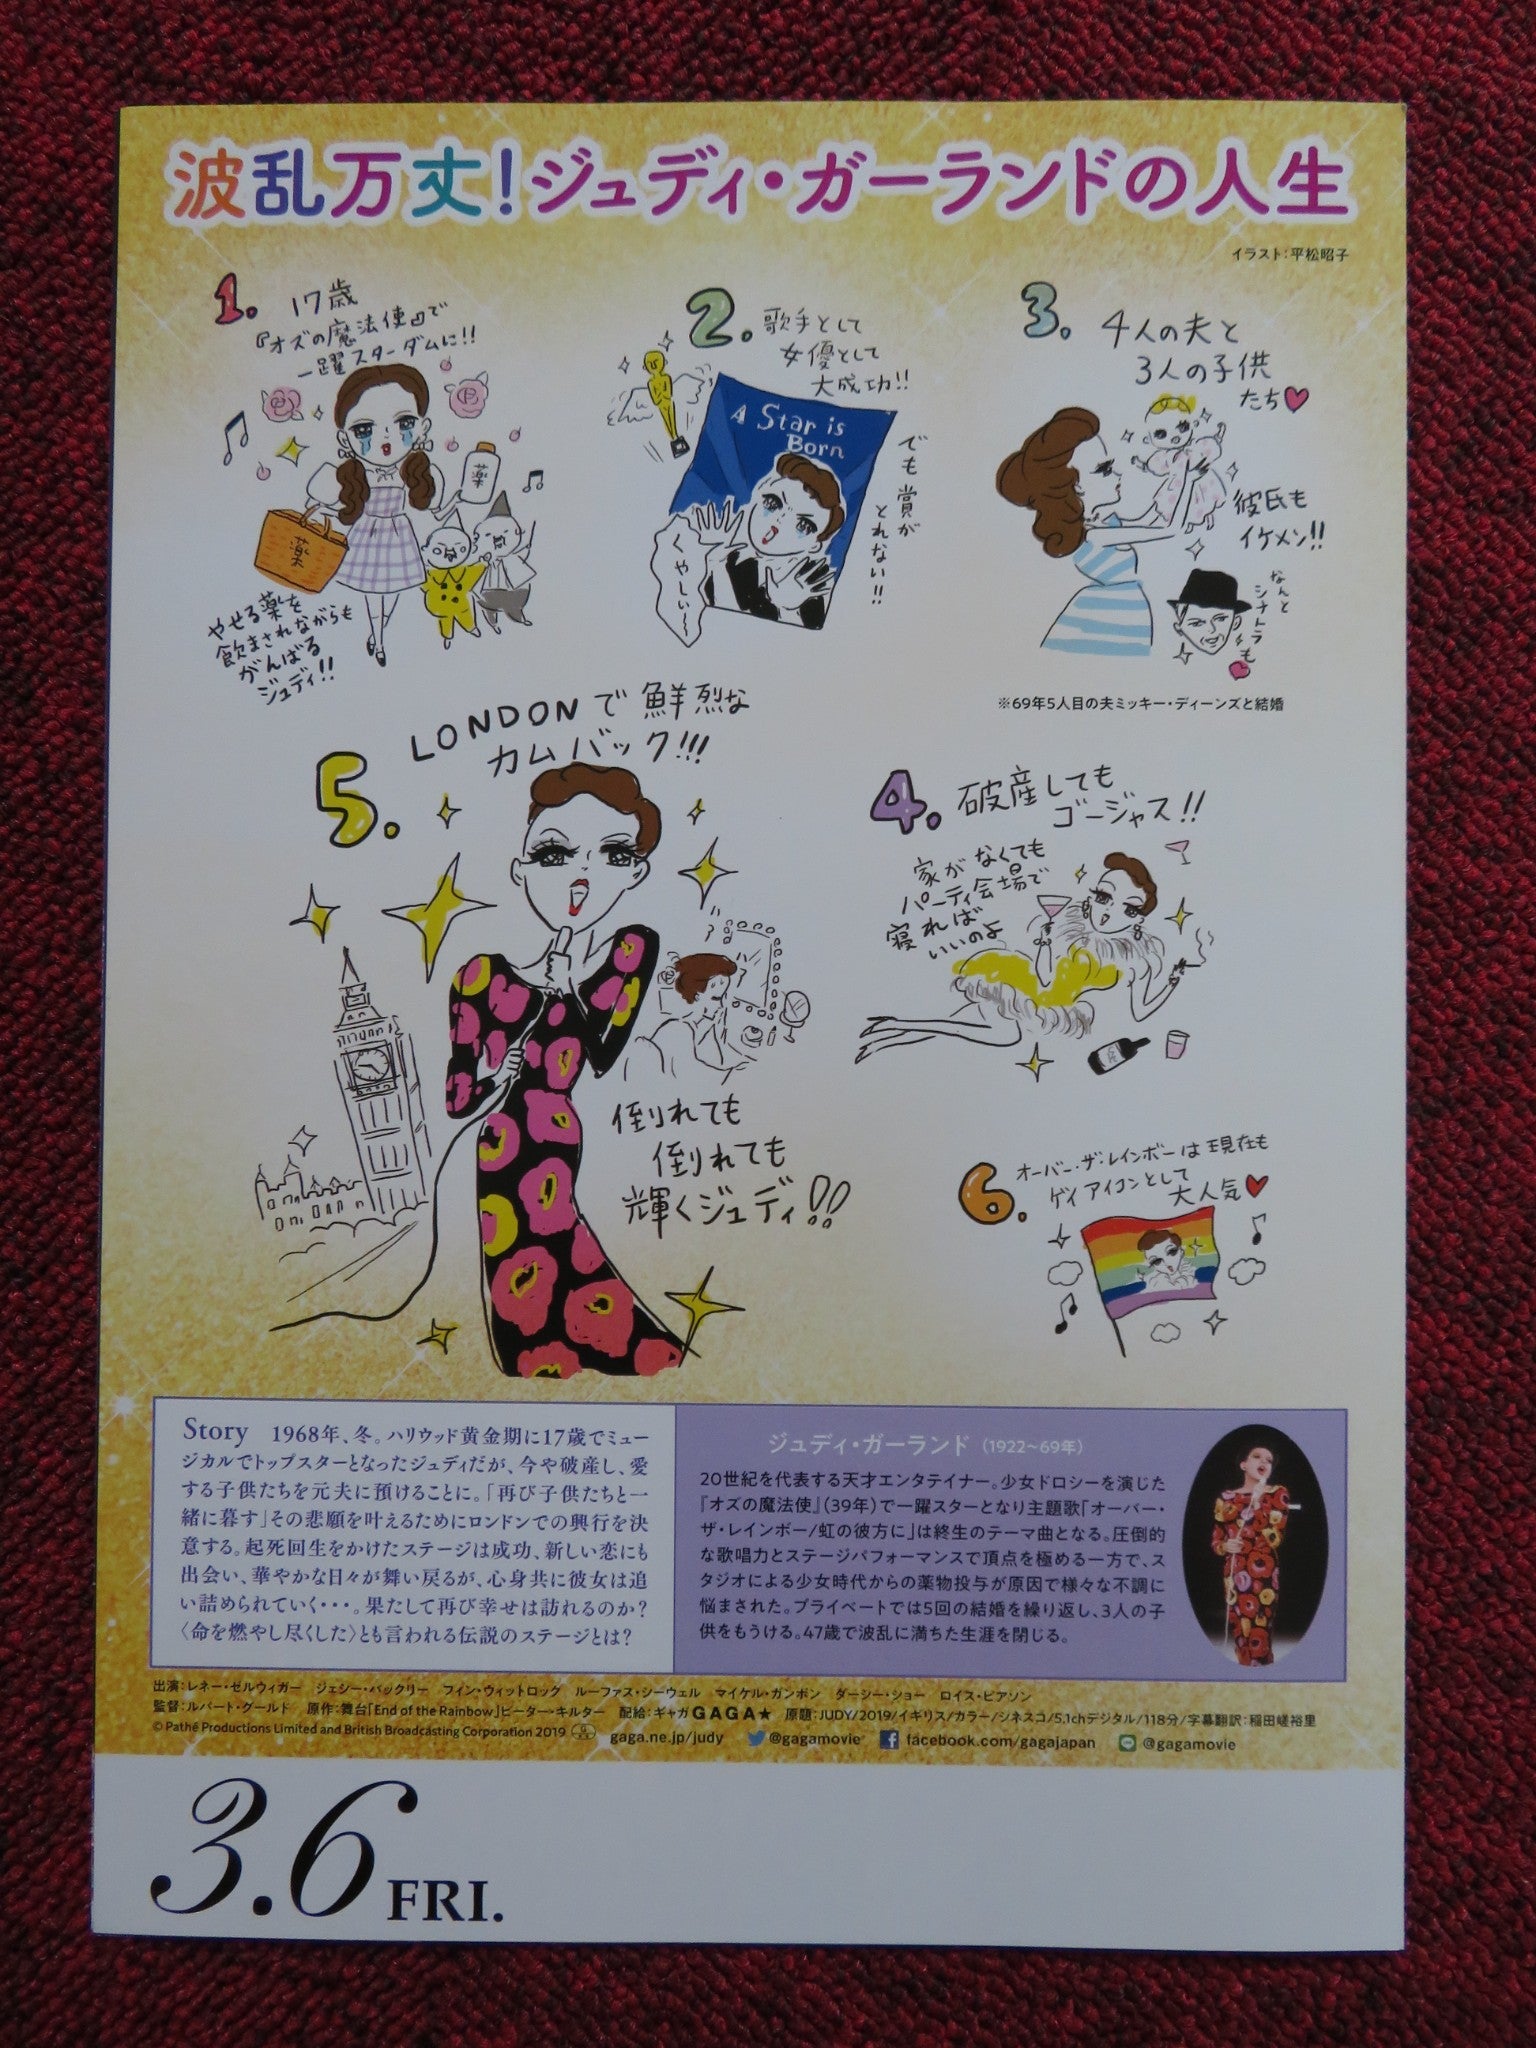 波乱万丈!ジュディ・ガーランドの人生
イラスト:平松昭子
1. 17歳
『オズの魔法使』で
一躍スターダムに!!
薬
薬
やせる薬を
飲まされながらも
がんばる
ジュディ!!
2. 歌手として
女優として
大成功!!
A Star is
Born
でも賞が
とれない!!
くやしい〜
3. 4人の夫と
3人の子供
たち
彼氏も
イケメン!!
なんと
シナトラも
※69年5人目の夫ミッキー・ディーンズと結婚
4. 破産しても
ゴージャス!!
家がなくても
パーティ会場で
寝れば
いいのよ
5. LONDONで鮮烈な
カムバック!!!
倒れても
倒れても
輝くジュディ!!
6. オーバー・ザ・レインボーは現在も
ゲイアイコンとして
大人気
Story 1968年、冬。ハリウッド黄金期に17歳でミュー
ジカルでトップスターとなったジュディだが、今や破産し、愛
する子供たちを元夫に預けることに。「再び子供たちと一
緒に暮す」その悲願を叶えるためにロンドンでの興行を決
意する。起死回生をかけたステージは成功、新しい恋にも
出会い、華やかな日々が舞い戻るが、心身共に彼女は追
い詰められていく・・・。果たして再び幸せは訪れるのか?
〈命を燃やし尽くした〉とも言われる伝説のステージとは?
ジュディ・ガーランド (1922~69年)
20世紀を代表する天才エンタテイナー。少女ドロシーを演じた
『オズの魔法使』(39年)で一躍スターとなり主題歌「オーバー・
ザ・レインボー/虹の彼方に」は終生のテーマ曲となる。圧倒的
な歌唱力とステージパフォーマンスで頂点を極める一方で、ス
タジオによる少女時代からの薬物投与が原因で様々な不調に
悩まされた。プライベートでは5回の結婚を繰り返し、3人の子
供をもうける。47歳で波乱に満ちた生涯を閉じる。
出演:レネー・ゼルウィガー ジェシー・バックリー フィン・ウィットロック ルーファス・シーウェル マイケル・ガンボン ダーシー・ショー ロイス・ピアソン
監督:ルパート・グールド 原作:舞台「End of the Rainbow」ピーター・キルター 配給:ギャガ GAGA★ 原題:JUDY/2019/イギリス/カラー/シネスコ/5.1chデジタル/118分/字幕翻訳:稲田嵯裕里
© Pathé Productions Limited and British Broadcasting Corporation 2019 G gaga.ne.jp/judy @gagamovie facebook.com/gagajapan @gagamovie
3.6 FRI.